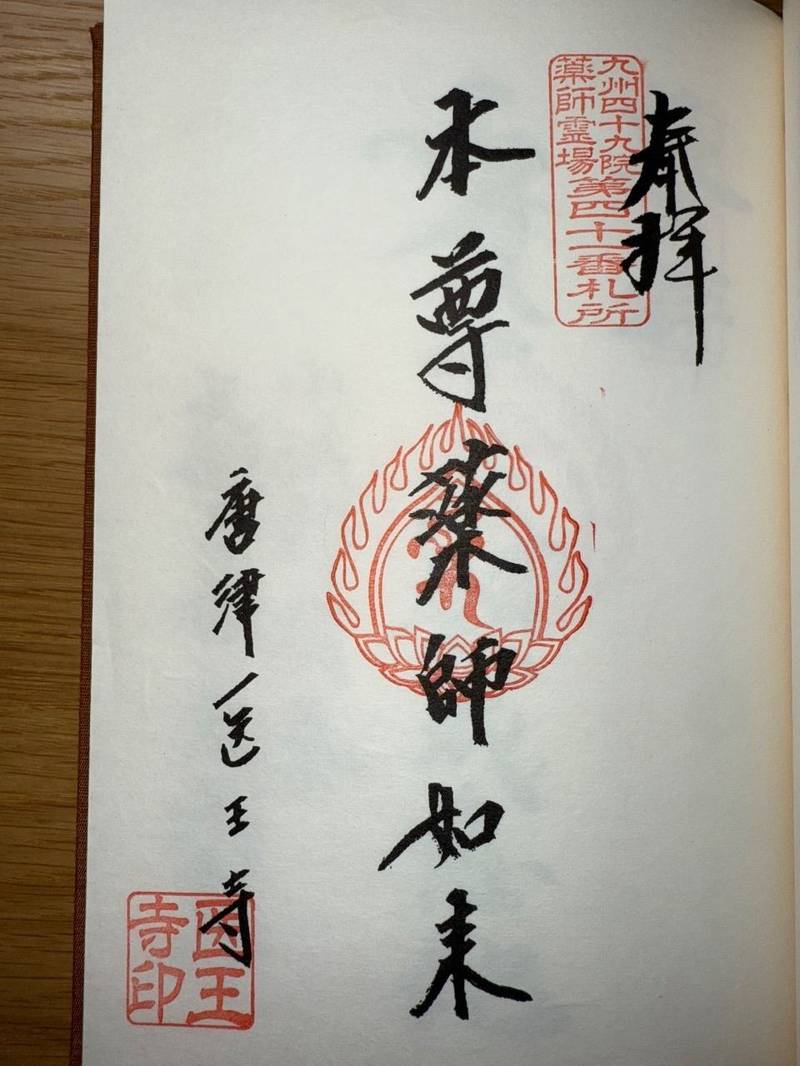 奉拝
九州四十九院
薬師霊場
第四十一番札所
本尊薬師如来
唐津医王寺
医王
寺印